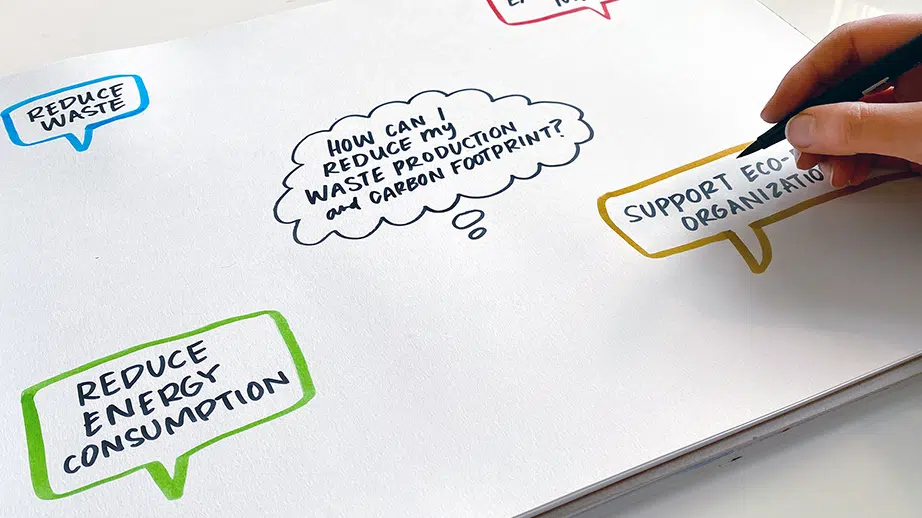 REDUCE
WASTE
HOW CAN I
REDUCE my
WASTE PRODUCTION
and CARBON FOOTPRINT?
SUPPORT
REDUCE
ENERGY
CONSUMPTION